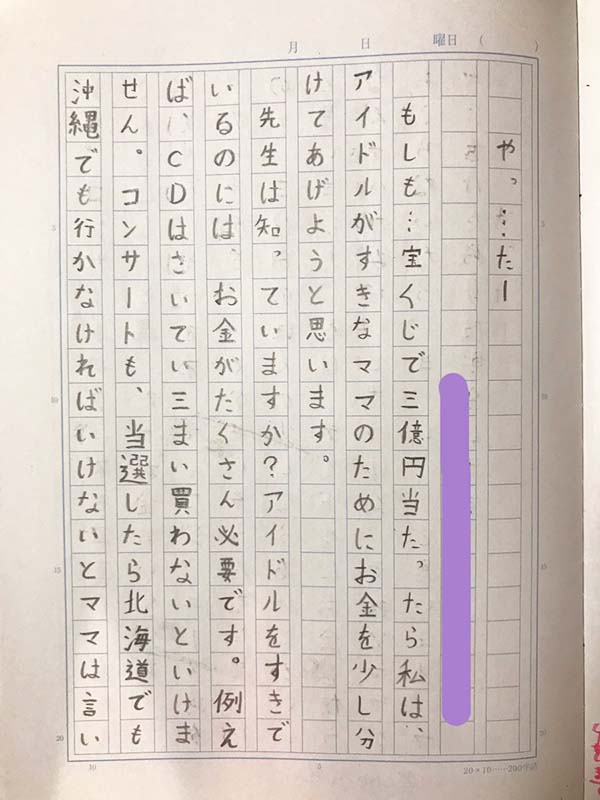 月 日 曜日( )
やっ…たー
もしも…宝くじで三億円当たったら私は、
アイドルがすきなママのためにお金を少し分
けてあげようと思います。
先生は知っていますか?アイドルをすきで
いるのには、お金がたくさん必要です。例え
ば、CDはさいてい三まい買わないといけま
せん。コンサートも、当選したら北海道でも
沖縄でも行かなければいけないとママは言い
5
10
15
20
5
10
15
20
10
5
20×10……200字詰